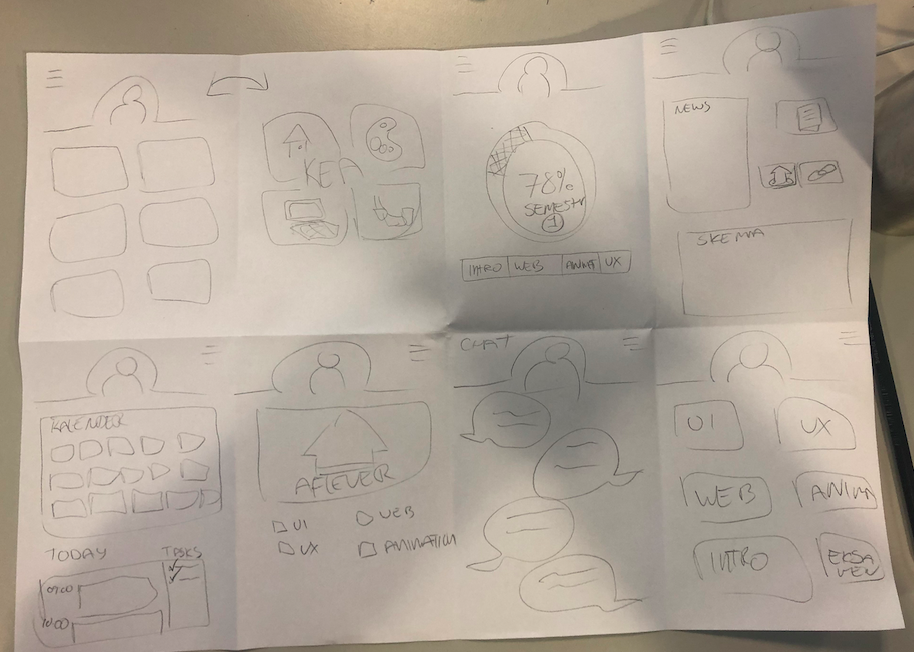 KEA
78%
SEMESTR
1
INTRO WEB ANIMAT UX
NEWS
SKEMA
KALENDER
TODAY TASKS
09:00
10:00
AFLEVER
UI WEB
UX ANIMATION
CHAT
UI UX
WEB ANIM
INTRO EKSA
MEN